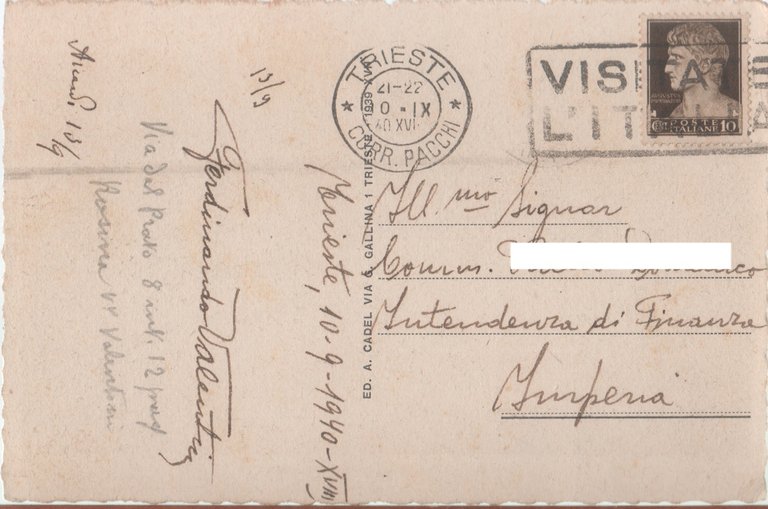 13/9
13/9
Via del Prato 8 int. 12
Rosina Valentini
Ferdinando Valentini
Trieste, 10-9-1940-XVIII
ED. A. CADEL VIA G. GALLINA 1 TRIESTE 1939 XVII
TRIESTE
21-22
0 · IX
40 XVI
CORR. PACCHI
VISITATE
L'ITALIA
POSTE
ITALIANE 10
Ill.mo Signor
Comm.
Intendenza di Finanza
Imperia